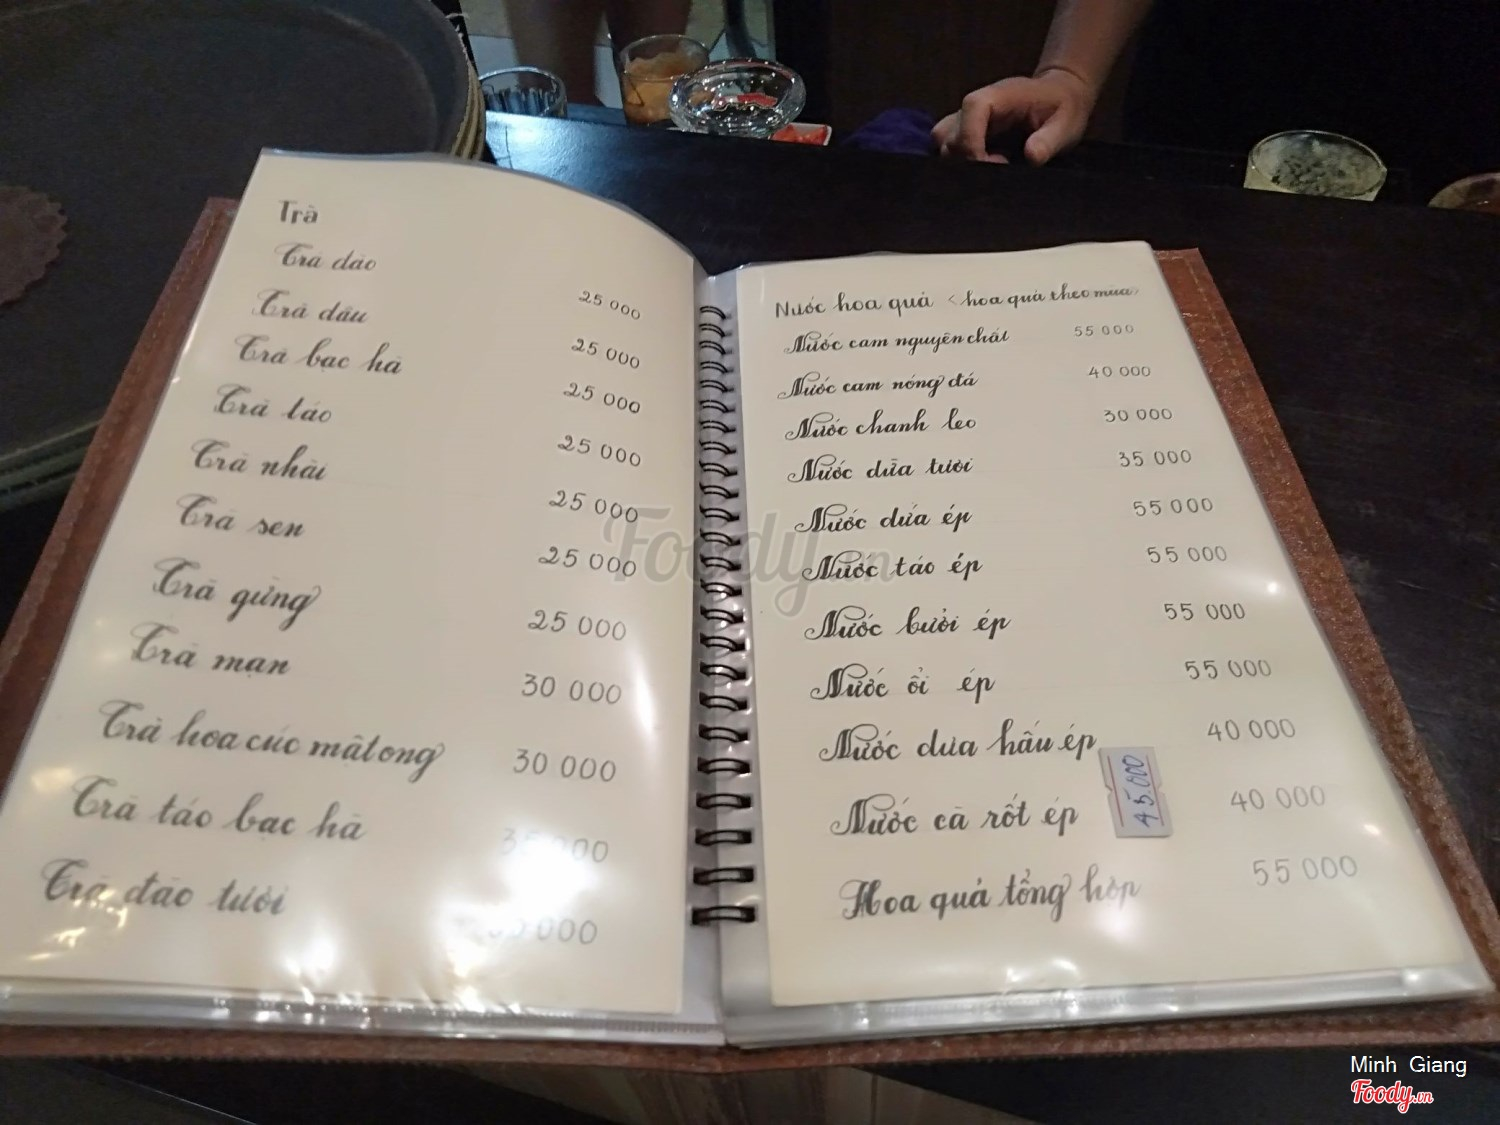 Trà
Trà đào 25 000
Trà dâu 25 000
Trà bạc hà 25 000
Trà táo 25 000
Trà nhài 25 000
Trà sen 25 000
Trà gừng 25 000
Trà mạn 30 000
Trà hoa cúc mật ong 30 000
Trà táo bạc hà 35 000
Trà đào tươi 000
Nước hoa quả <hoa quả theo mùa>
Nước cam nguyên chất 55 000
Nước cam nóng đá 40 000
Nước chanh leo 30 000
Nước dừa tươi 35 000
Nước dứa ép 55 000
Nước táo ép 55 000
Nước bưởi ép 55 000
Nước ổi ép 55 000
Nước dưa hấu ép 40 000
Nước cà rốt ép 45.000 40 000
Hoa quả tổng hợp 55 000
Foody.vn
Minh Giang
Foody.vn